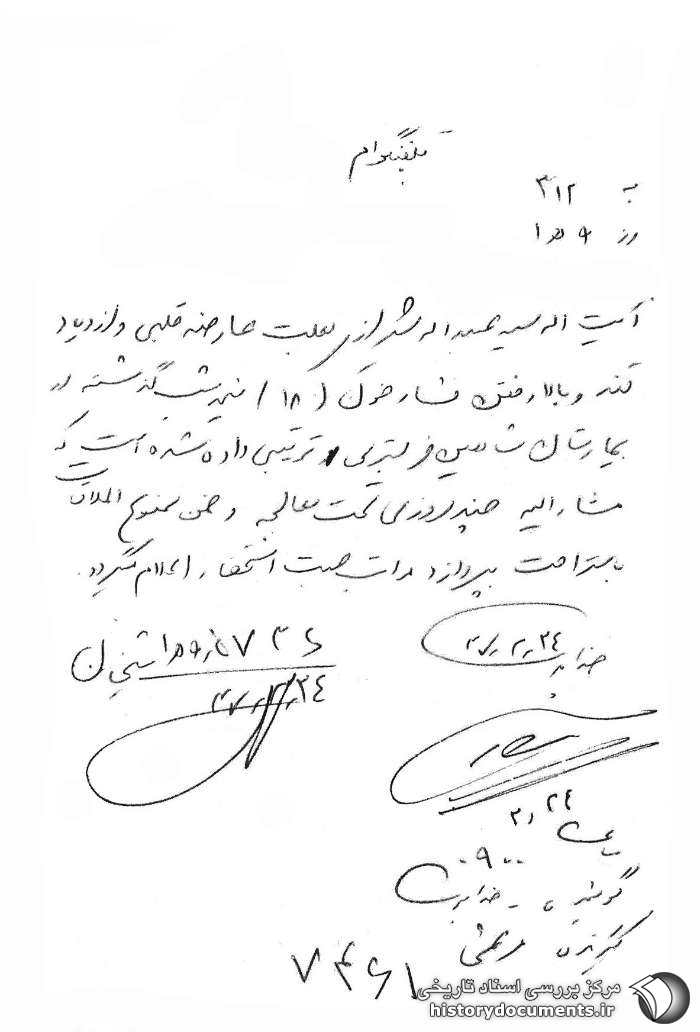 تلفنگرام
به ۳۱۲
از ۹ ه‍ ۱
آیت اله سید عبداله شیرازی بعلت عارضه قلبی و ازدیاد
قند و بالا رفتن فشار خون (۱۸) نیمه شب گذشته در
بیمارستان شاهین فر بستری و ترتیبی داده شده است که
مشارالیه چند روزی تحت معالجه و ضمن ممنوع الملاقات
باستراحت بپردازد مراتب جهت استحضار اعلام میگردد.
۴۷٫۲٫۲۴
۲٫۲۴
ساعت
۰۹۰۰
گوینده -
گیرنده
۷۴۶۱
مرکز بررسی اسناد تاریخی
historydocuments.ir